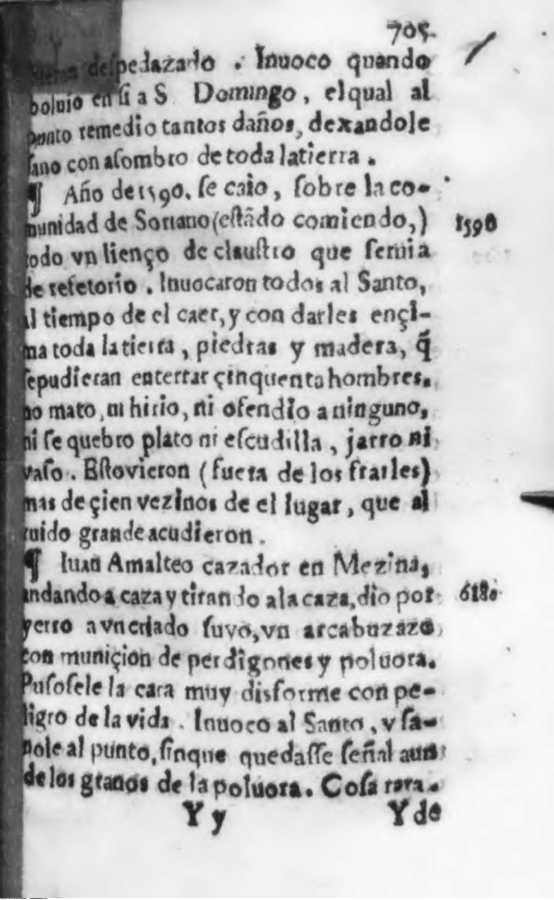 705.
despedazado . Inuoco quando
boluio en si a S Domingo, el qual al
punto remedio tantos daños, dexandole
sano con asombro de toda la tierra .
¶ Año de 1590. se caio, sobre la co-
munidad de Soriano (estãdo comiendo,)
1590
todo vn lienço de claustro que seruia
de refetorio . Inuocaron todos al Santo,
al tiempo de el caer, y con darles ençi-
ma toda la tierra, piedras y madera, q̃
se pudieran enterrar çinquenta hombres.
no mato, ni hirio, ni ofendio a ninguno,
ni se quebro plato ni escudilla, jarro ni
vaso . Estovieron (fuera de los frailes)
mas de çien vezinos de el lugar, que al
ruido grande acudieron .
¶ Iuan Amalteo cazador en Mezina,
andando a caza y tirando a la caza, dio por
yerro a vn criado suyo, vn arcabuzazo
con muniçion de perdigones y poluora.
Pusosele la cara muy disforme con pe-
ligro de la vida . Inuoco al Santo, y sa-
nole al punto, sin que quedasse señal aun
de los granos de la poluora. Cosa rara.
Y y Y de